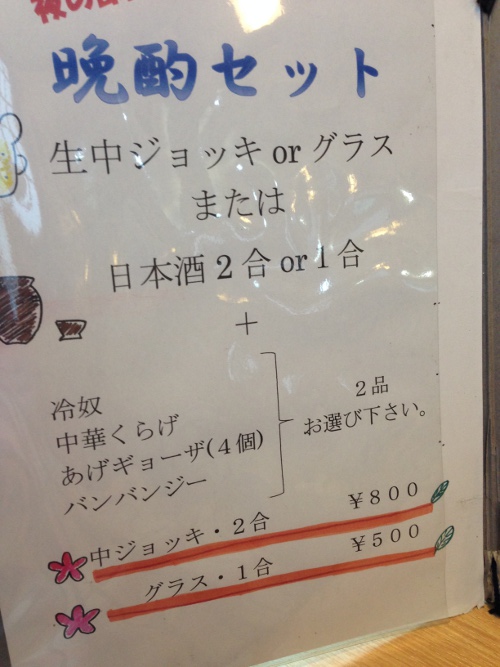 晩酌セット
生中ジョッキ or グラス
または
日本酒２合 or １合
＋
冷奴
中華くらげ
あげギョーザ(４個)
バンバンジー
２品
お選び下さい。
中ジョッキ・２合 ￥８００
グラス・１合 ￥５００